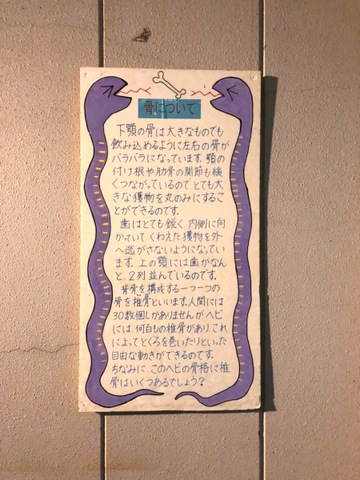 骨について
下顎の骨は大きなものでも
飲み込めるように左右の骨が
バラバラになっています。顎の
付け根や肋骨の関節も緩
くつながっているのでとても大
きな獲物を丸のみにするこ
とができるのです。
歯はとても鋭く、内側に向
かっていてくわえた獲物を外
へ逃がさないようになってい
ます。上の顎には歯がなん
と、2列並んでいるのです。
背骨を構成する一つ一つの
骨を椎骨といいます。人間には
30数個しかありませんがヘビ
には何百もの椎骨があり、これ
によってとぐろを巻いたりといった
自由な動きができるのです。
ちなみにこのヘビの骨格に椎
骨はいくつあるでしょう？